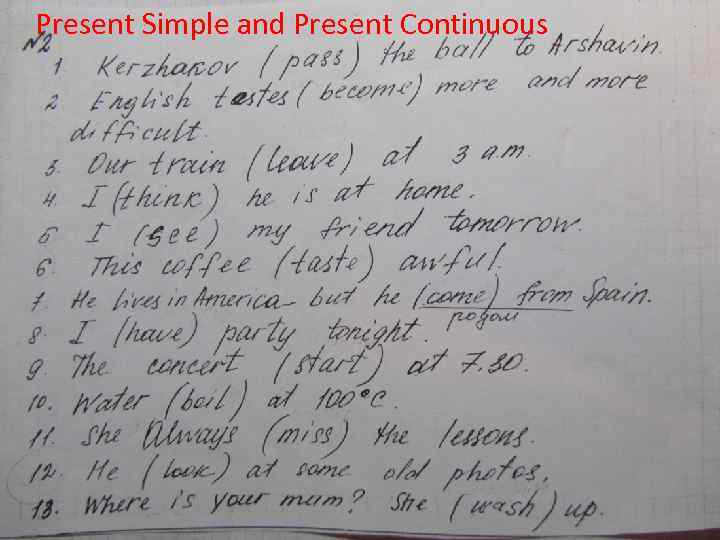 Present Simple and Present Continuous
№2
1. Kerzhakov (pass) the ball to Arshavin.
2. English testes (become) more and more
difficult.
3. Our train (leave) at 3 a.m.
4. I (think) he is at home.
5. I (see) my friend tomorrow.
6. This coffee (taste) awful.
7. He lives in America but he (come) from Spain.
родом
8. I (have) party tonight.
9. The concert (start) at 7.30.
10. Water (boil) at 100°C.
11. She always (miss) the lessons.
12. He (look) at some old photos.
13. Where is your mum? She (wash) up.